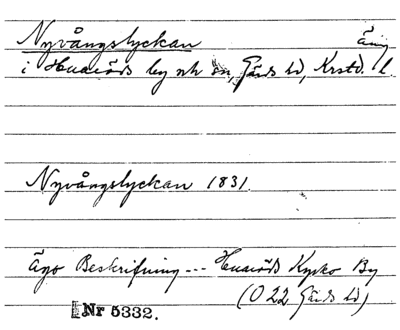 Nyvångslyckan äng
i Huaröds by och sn, Gärds hd, Krstd. l
Nyvångslyckan 1831
Ägo Beskrifning --- Huaröds Kyrko By
(O 22 Gärds hd)
Nr 5332.